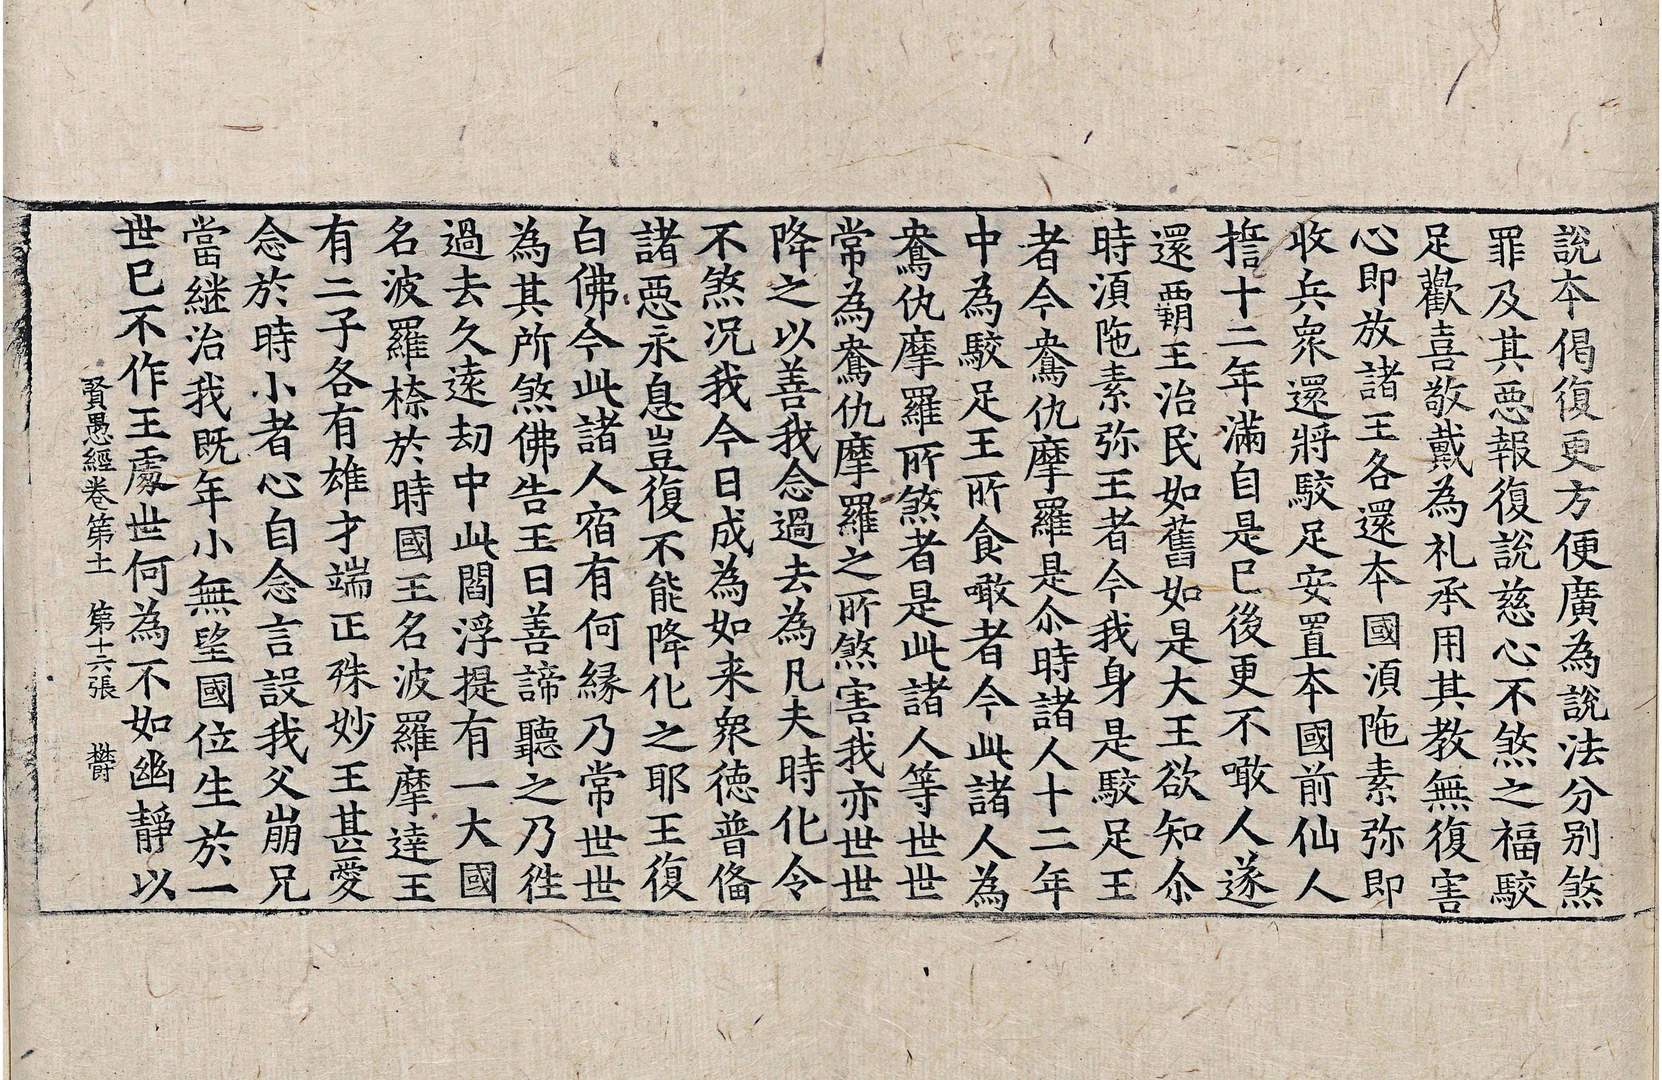 說本偈復更方便廣為說法分別煞
罪及其惡報復說慈心不煞之福駮
足歡喜敬戴為礼承用其教無復害
心即放諸王各還本國湏陁素弥即
收兵衆還將駮足安置本國前仙人
誓十二年滿自是已後更不噉人遂
還霸王治民如舊如是大王欲知尒
時湏陁素弥王者今我身是駮足王
者今鴦仇摩羅是尒時諸人十二年
中為駮足王所食噉者今此諸人為
鴦仇摩羅所煞者是此諸人等世世
常為鴦仇摩羅之所煞害我亦世世
降之以善我念過去為凡夫時化令
不煞况我今日成為如来衆徳普俻
諸惡永息豈復不能降化之耶王復
白佛今此諸人宿有何縁乃常世世
為其所煞佛告王曰善諦聽之乃徃
過去久遠劫中此閻浮提有一大國
名波羅㮈於時國王名波羅摩達王
有二子各有雄才端正殊妙王甚愛
念於時小者心自念言設我父崩兄
當継治我既年小無望國位生於一
世已不作王處世何為不如幽靜以
賢愚經卷第十一 第十六張 欝